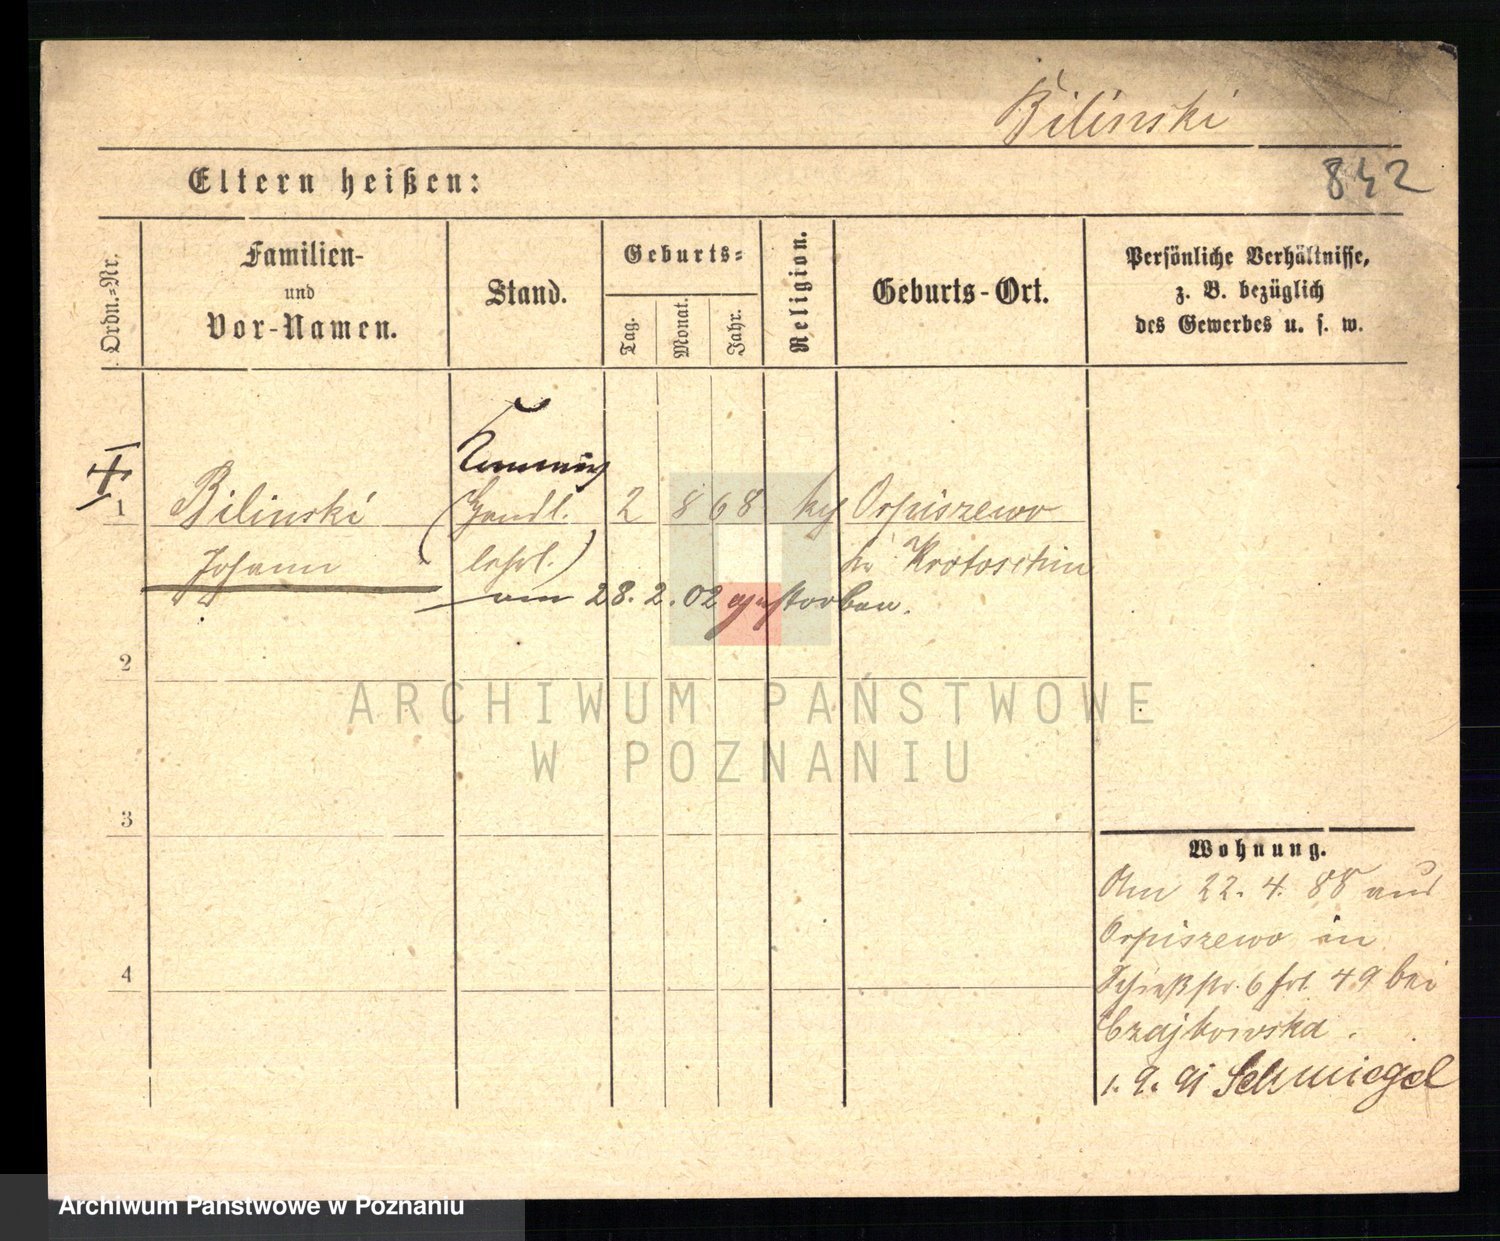 Bilinski
842
Eltern heißen:
Ordn.-Nr.
Familien-
und
Vor-Namen.
Stand.
Geburts-
Tag.
Monat.
Jahr.
Religion.
Geburts-Ort.
Persönliche Verhältnisse,
z. B. bezüglich
des Gewerbes u. s. w.
1 Bilinski (Handl. 2 8 68 kg Orpiszewo
Johann lehrl.) Kr Krotoschin
am 28. 2. 02 gestorben.
2
ARCHIWUM PAŃSTWOWE
W POZNANIU
3
Wohnung.
Am 22. 4. 88 aus
Orpiszewo in
Schießstr. 6 frl 49 bei
Czajkowska.
4
1. 9. 91 Schmiegel
Archiwum Państwowe w Poznaniu